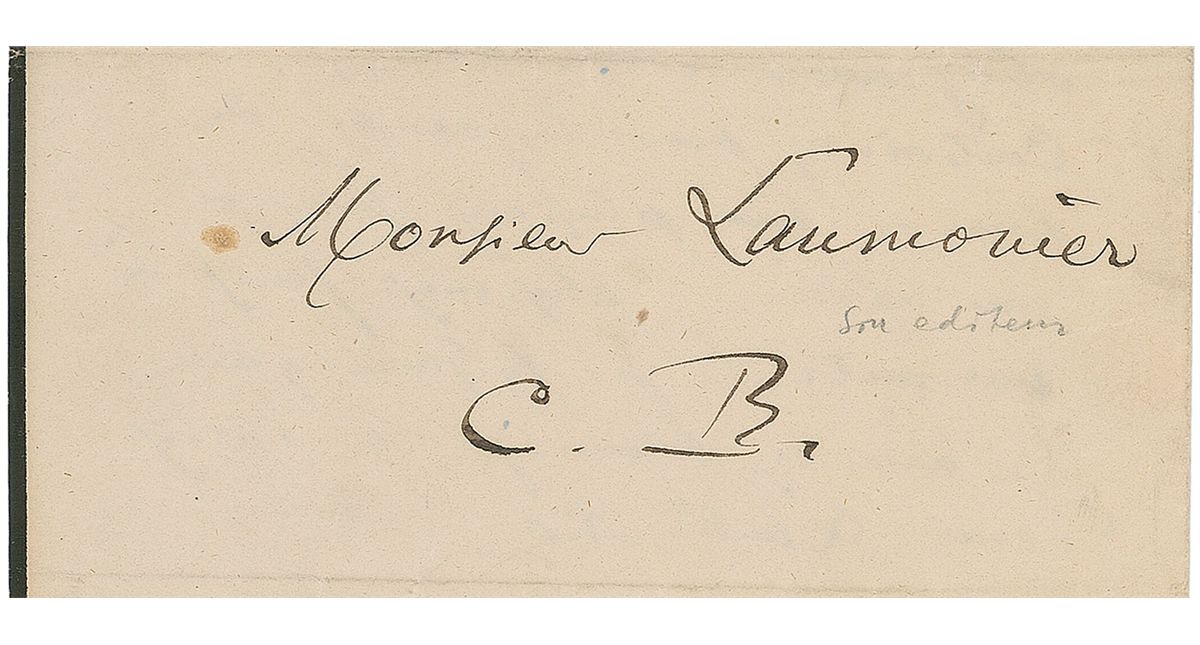 Monsieur Laumonier
Son editeur
C. B.